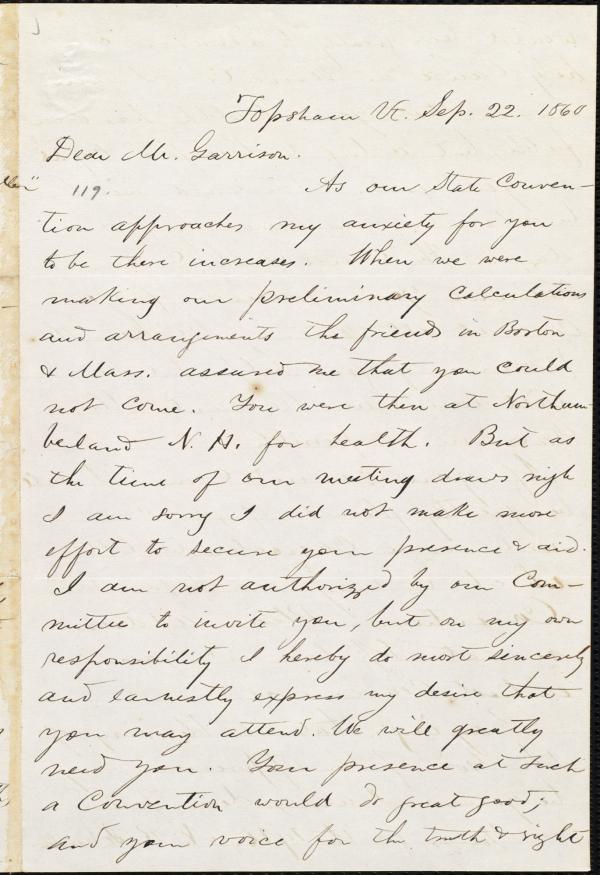 Topsham Vt. Sep. 22. 1860
Dear Mr. Garrison.
119.
As our State Conven-
tion approaches my anxiety for you
to be there increases. When we were
making our preliminary calculations
and arrangements the friends in Boston
& Mass. assured me that you could
not come. You were then at Northum-
berland N. H. for health. But as
the time of our meeting draws nigh
I am sorry I did not make more
effort to secure your presence & aid.
I am not authorized by our Com-
mittee to invite you, but on my own
responsibility I hereby do most sincerely
and earnestly express my desire that
you may attend. We will greatly
need you. Your presence at such
a Convention would do great good;
and your voice for the truth & right